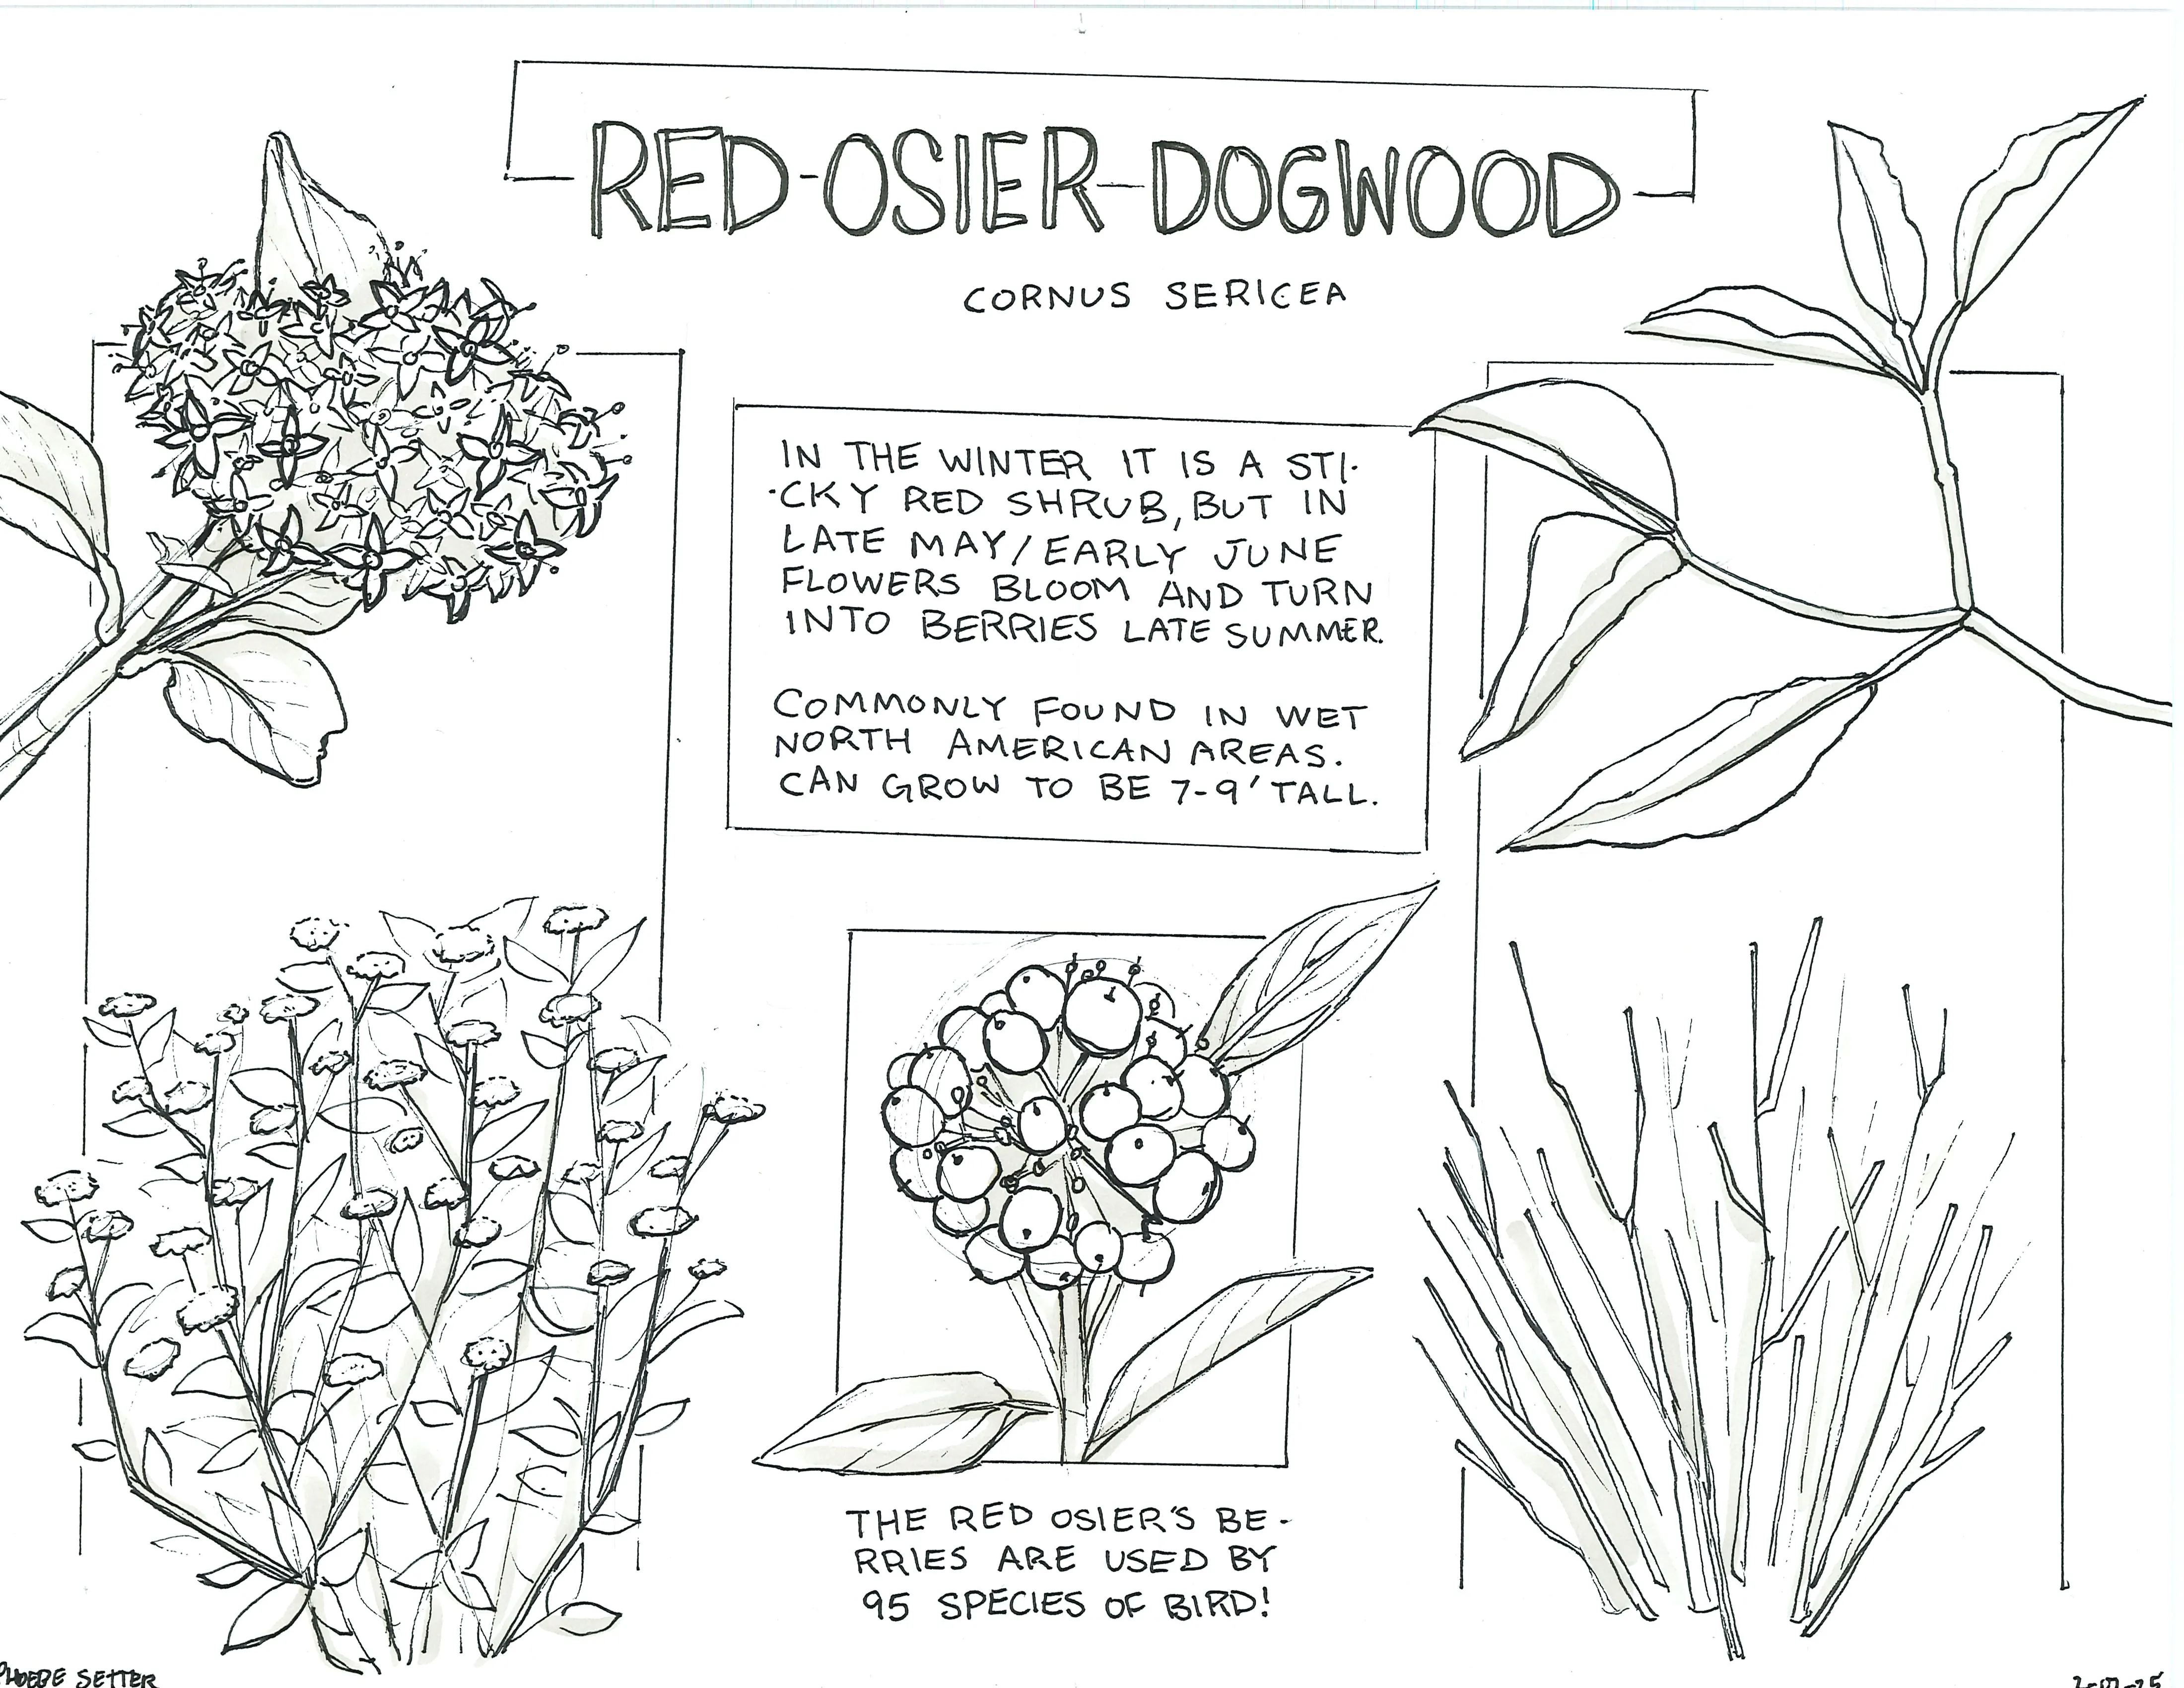 RED-OSIER-DOGWOOD
CORNUS SERICEA
IN THE WINTER IT IS A STI-
-CKY RED SHRUB, BUT IN
LATE MAY/EARLY JUNE
FLOWERS BLOOM AND TURN
INTO BERRIES LATE SUMMER.
COMMONLY FOUND IN WET
NORTH AMERICAN AREAS.
CAN GROW TO BE 7-9' TALL.
THE RED OSIER'S BE-
RRIES ARE USED BY
95 SPECIES OF BIRD!
PHOEBE SETTER